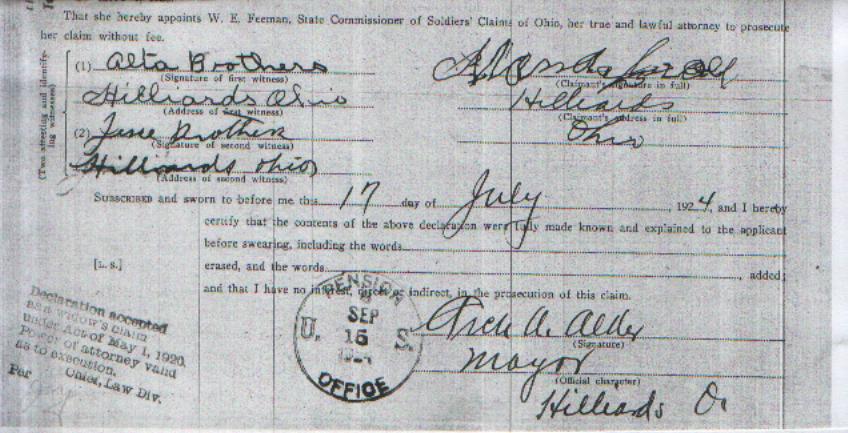 That she hereby appoints W. E. Feeman, State Commissioner of Soldiers' Claims of Ohio, her true and lawful attorney to prosecute
her claim without fee.
(Two attesting and identify-
ing witnesses)
(1) Alta Brothers
(Signature of first witness)
(Claimant's signature in full)
Hilliards Ohio
Hilliards
(Address of first witness)
(Claimant's address in full)
(2) Jesse Brothers
Ohio
(Signature of second witness)
Hilliards Ohio
(Address of second witness)
Subscribed and sworn to before me this 17 day of July, 1924, and I hereby
certify that the contents of the above declaration were fully made known and explained to the applicant
before swearing, including the words
[L. S.] erased, and the words, added;
and that I have no interest, direct or indirect, in the prosecution of this claim.
Declaration accepted
as a widow's claim
under Act of May 1, 1920.
Power of attorney valid
as to execution.
Chief, Law Div.
Per
PENSION
SEP
U. 15 S.
OFFICE
A. Alder
(Signature)
Mayor
(Official character)
Hilliards O